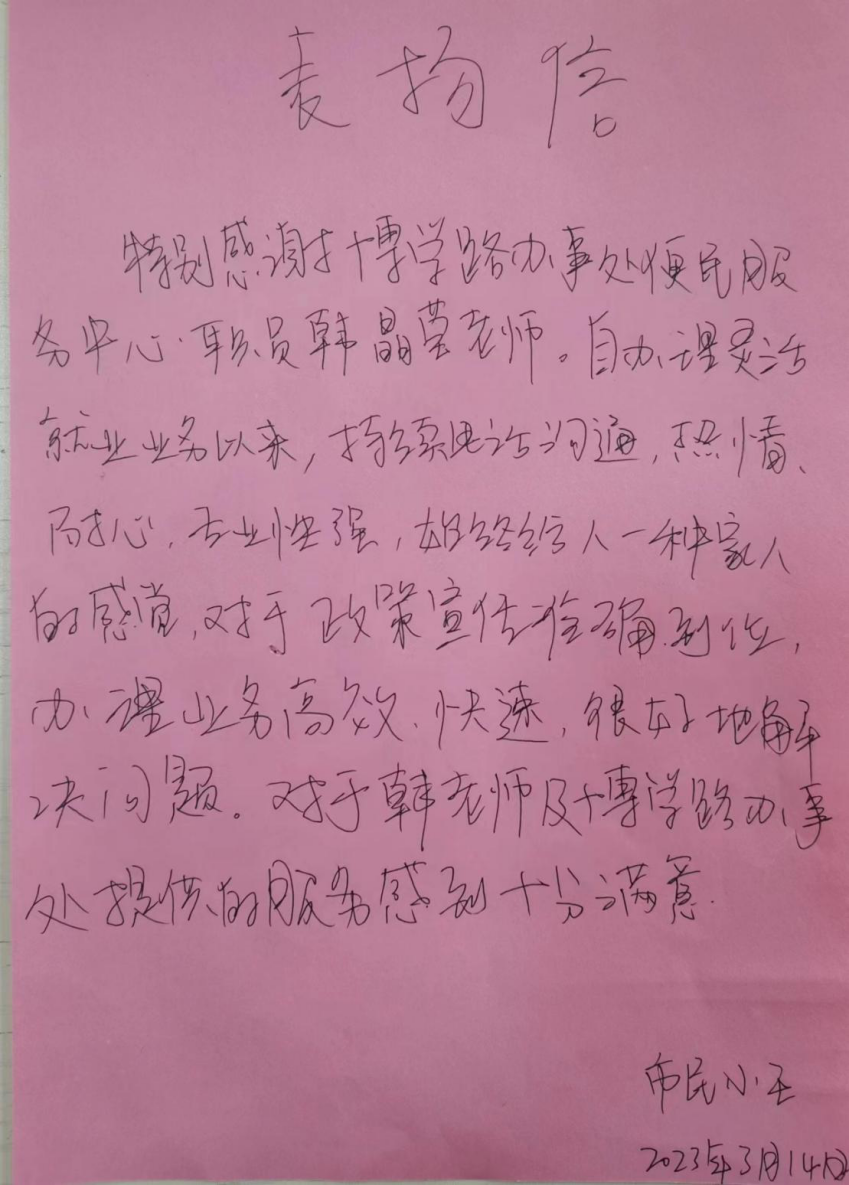 表扬信
特别感谢博学路办事处便民服
务中心职员韩晶莹老师。自办理灵活
就业业务以来,持续电话沟通,热情、
耐心、专业性强,始终给人一种家人
的感觉,对于政策宣传准确到位,
办理业务高效、快速,很好地解
决问题。对于韩老师及博学路办事
处提供的服务感到十分满意.
市民小王
2023年3月14日